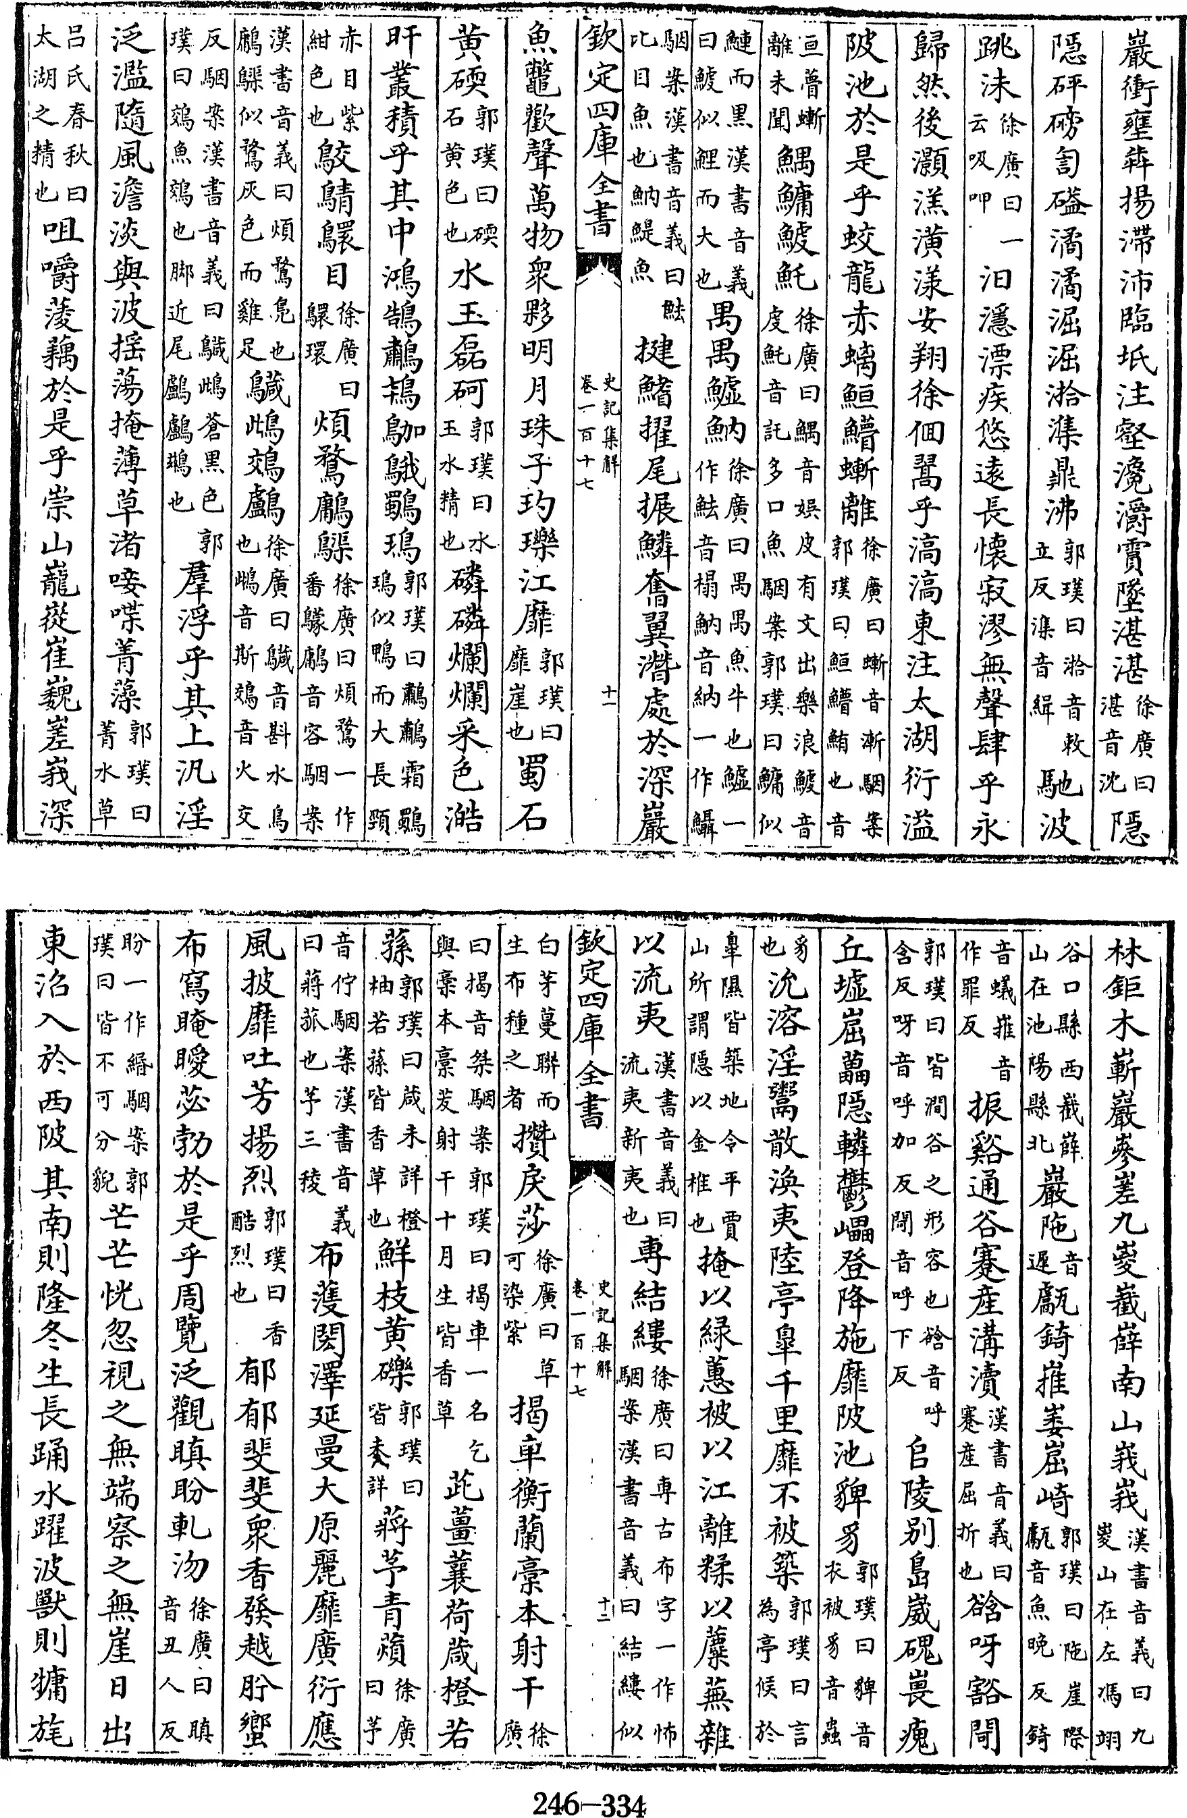 巖衝壅犇揚滯沛臨坻注壑瀺灂霣墜湛湛徐廣曰湛音沈隱
隱砰磅訇磕潏潏淈淈湁潗鼎沸郭璞曰湁音敕立反潗音緝馳波
跳沬徐廣曰一云吸呷汩濦漂疾悠遠長懷寂漻無聲肆乎永
歸然後灝溔潢漾安翔徐徊翯乎滈滈東注太湖衍溢
陂池於是乎蛟龍赤螭䱭䲛螹離徐廣曰螹音漸駰案郭璞曰䱭䲛鮪也音
亘瞢螹離未聞鰅鱅鰬魠徐廣曰鰅音娛皮有文出樂浪鰬音虔魠音託多口魚駰案郭璞曰鱅似
鰱而黑漢書音義曰鰬似鯉而大也禺禺鱋魶徐廣曰禺禺魚牛也鱋一作魼音榻魶音納一作鰨
駰案漢書音義曰魼比目魚也魶鯷魚揵鰭擢尾振鱗奮翼潛處於深巖
欽定四庫全書 史記集解卷一百十七 十一
魚鼈歡聲萬物衆夥明月珠子玓瓅江靡郭璞曰靡崖也蜀石
黄碝郭璞曰碝石黄色也水玉磊砢郭璞曰水玉水精也磷磷爛爛采色澔
旰叢積乎其中鴻鵠鷫鴇鴐鵝鸀鳿郭璞曰鷫鷫霜鸀鳿似鴨而大長頸
赤目紫紺色也鵁鶄䴉目徐廣曰䴉環煩鶩鷛𪆫徐廣曰煩鶩一作番䳱鷛音容駰案
漢書音義曰煩鶩鳧也鷛𪆫似鶩灰色而雞足䴋鴜鵁鸕徐廣曰䴋音斟水鳥也鴜音斯鵁音火交
反駰案漢書音義曰䴋鴜蒼黑色郭璞曰鵁魚鵁也脚近尾鸕鸕鷀也羣浮乎其上汎淫
泛濫隨風澹淡與波摇蕩掩薄草渚唼喋菁藻郭璞曰菁水草
吕氏春秋曰太湖之精也咀嚼蔆藕於是乎崇山巃嵸崔巍嵳峩深
林鉅木嶄巖嵾嵳九嵕嶻嶭南山峩峩漢書音義曰九嵕山在左馮翊
谷口縣西嶻嶭山在池陽縣北巖陁甗錡嶊崣崛崎郭璞曰陁崖際甗音魚晚反錡
音蟻嶊音作罪反振谿通谷蹇產溝瀆漢書音義曰蹇產屈折也谽呀豁閜
郭璞曰皆澗谷之形容也谽音呼含反呀音呼加反閜音呼下反㠯陵别島崴磈㟪瘣
丘墟崫藟隱轔鬱㠥登降施靡陂池貏豸郭璞曰貏音衣被豸音蟲
豸也沇溶淫鬻散渙夷陸亭臯千里靡不被築郭璞曰言為亭候於
臯隰皆築地令平賈山所謂隱以金椎也掩以緑蕙被以江離糅以蘪蕪雜
以流夷漢書音義曰流夷新夷也專結縷徐廣曰專古布字一作怖駰案漢書音義曰結縷似
欽定四庫全書 史記集解卷一百十七 十二
白茅蔓聯而生布種之者攢戾莎徐廣曰草可染紫揭車衡蘭槀本射干徐廣
曰揭音桀駰案郭璞曰揭車一名乞與槀本槀茇射干十月生皆香草茈薑蘘荷葴橙若
蓀郭璞曰葴未詳橙柚若蓀皆香草也鮮枝黄礫郭璞曰皆未詳蔣芧青薠徐廣曰芧
音佇駰案漢書音義曰蔣菰也芧三稜布濩閎澤延曼大原麗靡廣衍應
風披靡吐芳揚烈郭璞曰香酷烈也郁郁斐斐衆香發越肸蠁
布寫晻曖苾勃於是乎周覽泛觀瞋盼軋沕徐廣曰瞋音丑人反
盼一作緡駰案郭璞曰皆不可分貌芒芒恍忽視之無端察之無崖日出
東沼入於西陂其南則隆冬生長踊水躍波獸則㺎旄
246-334